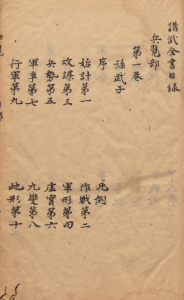 講武全書目錄
兵覽部
第一卷
孫武子
序 凡例
始計第一 作戰第二
攻謀第三 軍形第四
兵勢第五 虛實第六
軍爭第七 九變第八
行軍第九 地形第十